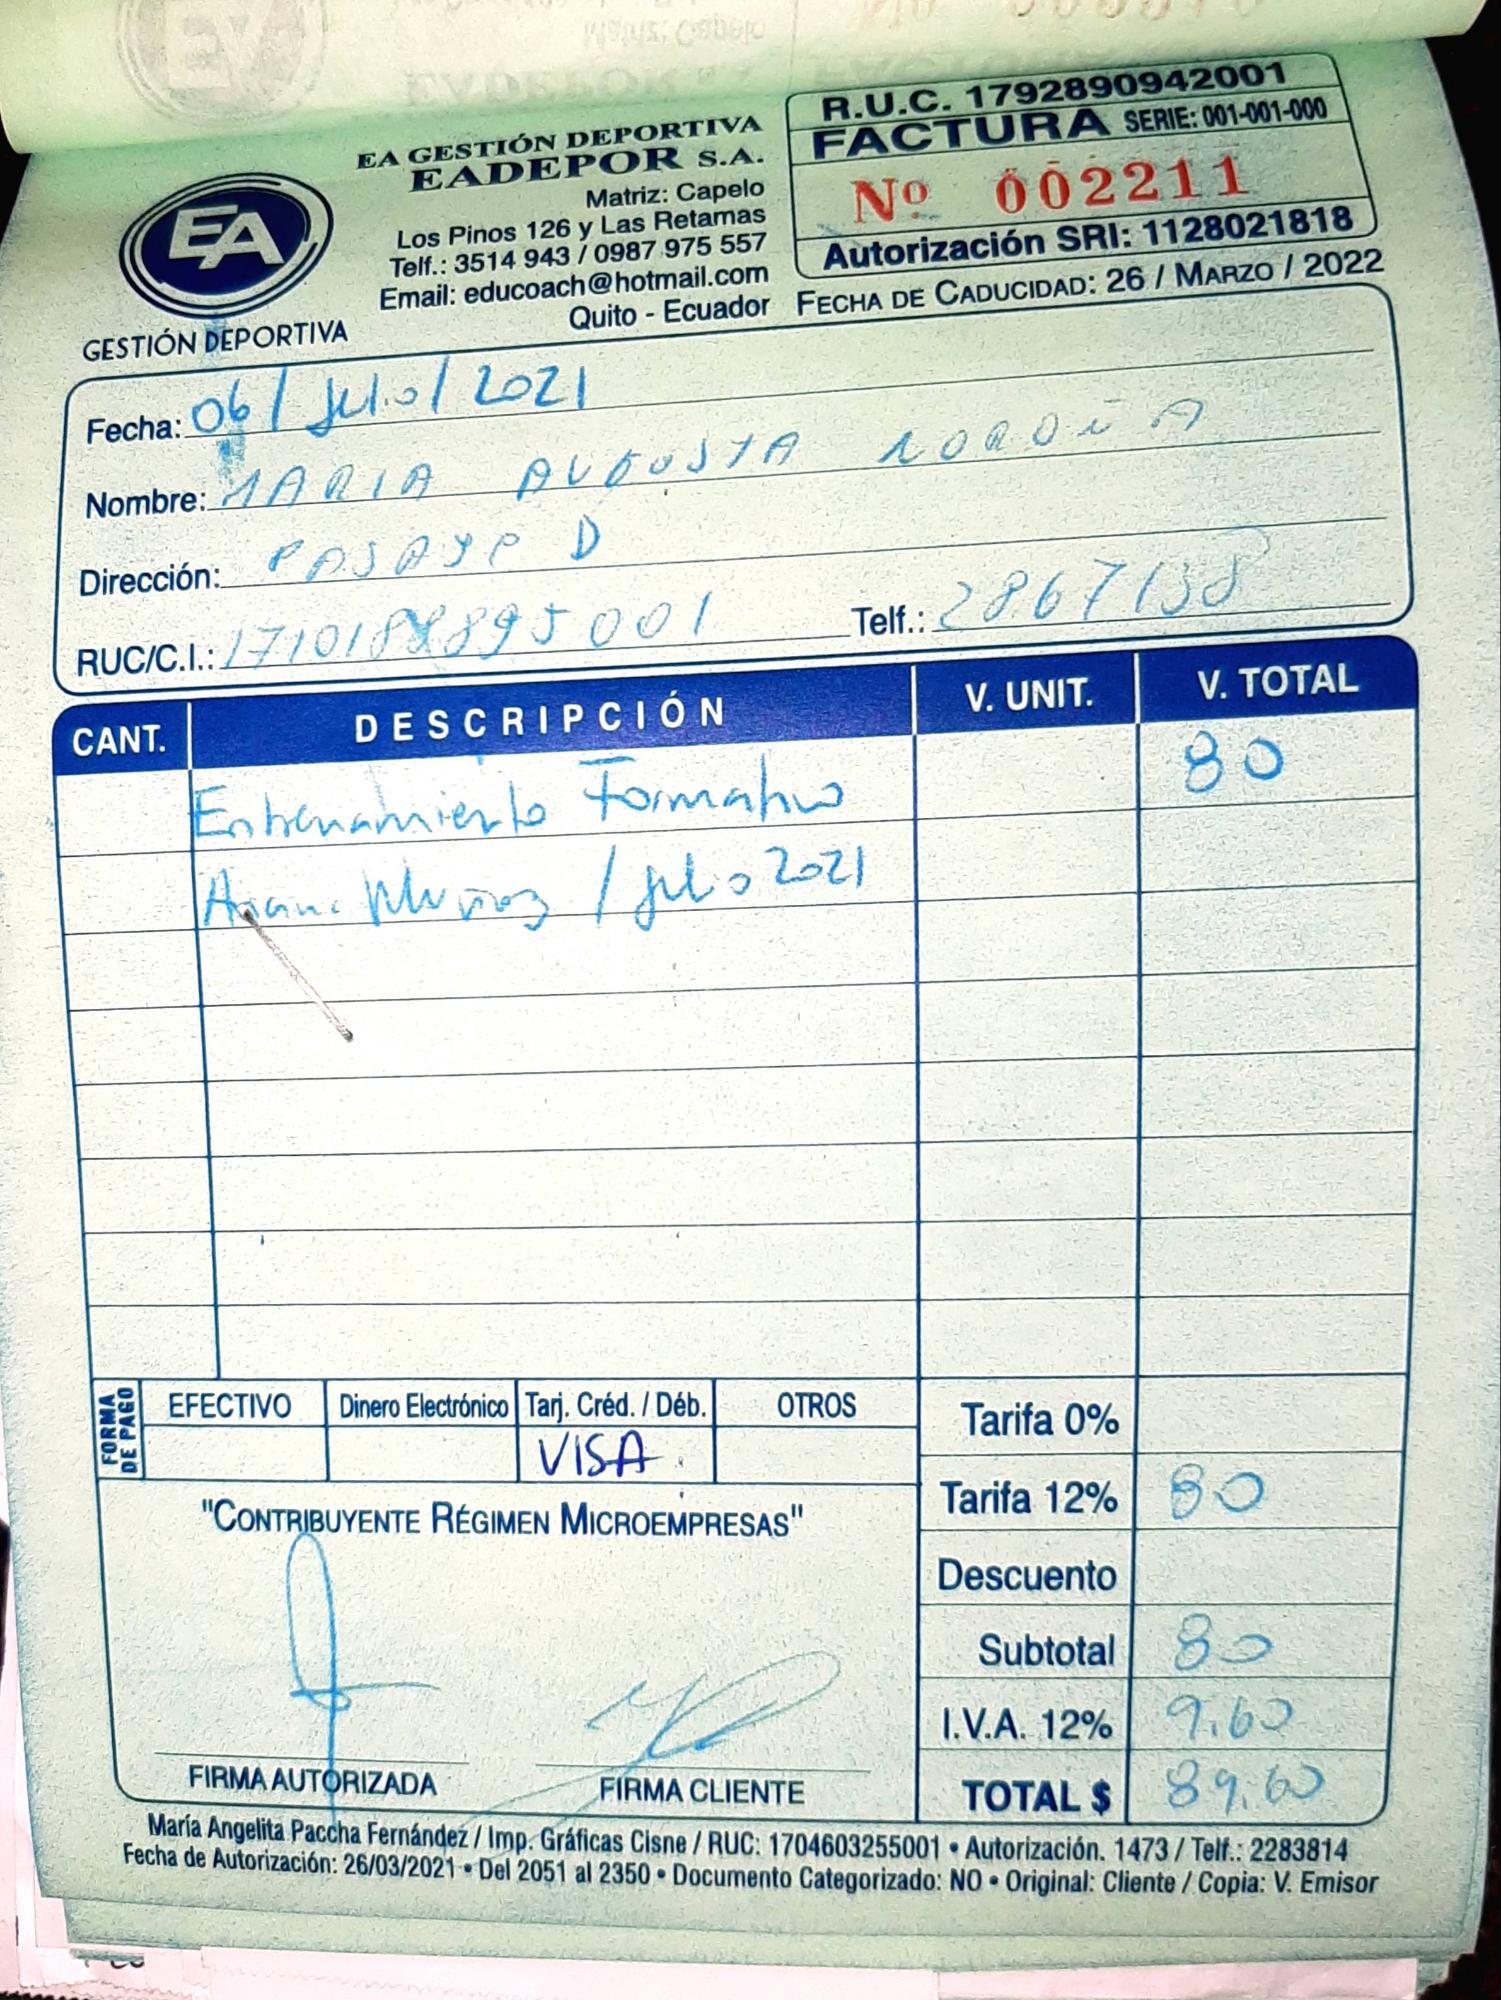 EA GESTIÓN DEPORTIVA
EADEPOR S.A.
Matriz: Capelo
Los Pinos 126 y Las Retamas
Telf.: 3514 943 / 0987 975 557
Email: educoach@hotmail.com
Quito - Ecuador
EA
GESTIÓN DEPORTIVA
R.U.C. 1792890942001
FACTURA SERIE: 001-001-000
Nº 002211
Autorización SRI: 1128021818
FECHA DE CADUCIDAD: 26 / MARZO / 2022
Fecha: 06 / Julio / 2021
Nombre: MARIA AUGUSTA NOROÑA
Dirección: PASAJE D
RUC/C.I.: 1710188895001 Telf.: 2867138
CANT. DESCRIPCIÓN V. UNIT. V. TOTAL
Entrenamiento Formativo 80
Muñoz / Julio 2021
FORMA DE PAGO
EFECTIVO Dinero Electrónico Tarj. Créd. / Déb. OTROS
VISA
Tarifa 0%
Tarifa 12% 80
Descuento
Subtotal 80
I.V.A. 12% 9.60
TOTAL $ 89.60
"CONTRIBUYENTE RÉGIMEN MICROEMPRESAS"
FIRMA AUTORIZADA FIRMA CLIENTE
María Angelita Paccha Fernández / Imp. Gráficas Cisne / RUC: 1704603255001 • Autorización. 1473 / Telf.: 2283814
Fecha de Autorización: 26/03/2021 • Del 2051 al 2350 • Documento Categorizado: NO • Original: Cliente / Copia: V. Emisor